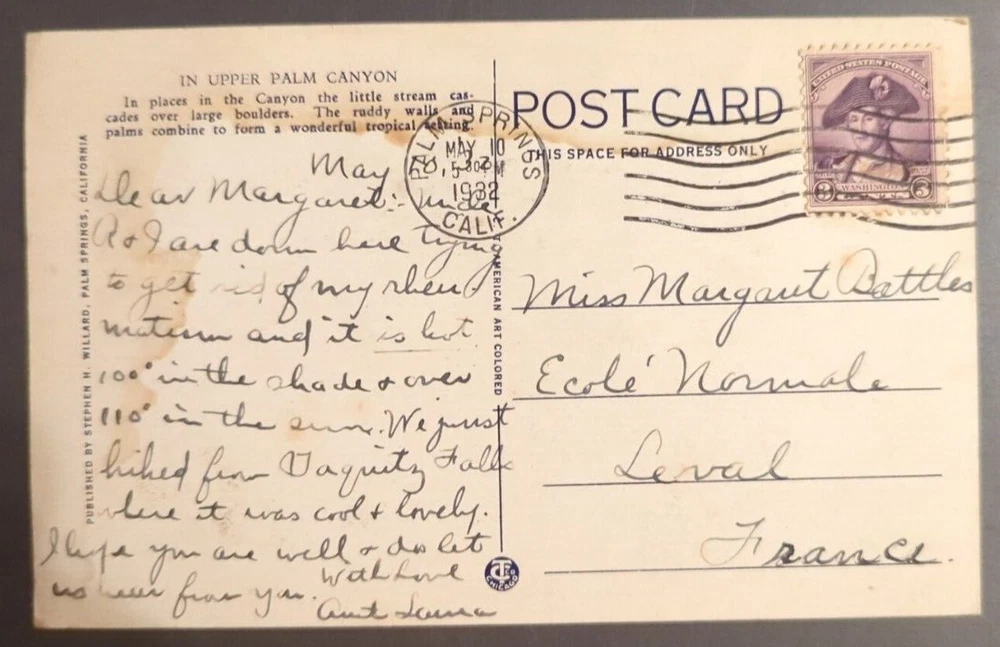 IN UPPER PALM CANYON
In places in the Canyon the little stream cas-
cades over large boulders. The ruddy walls and
palms combine to form a wonderful tropical setting.
May
Dear Margaret:- Uncle
R & I are down here trying
to get rid of my rheu-
matism and it is hot
100° in the shade & over
110° in the sun. We just
hiked from Taquitz Falls
where it was cool & lovely.
I hope you are well & do let
us hear from you.
With Love
Aunt Laura
PUBLISHED BY STEPHEN H. WILLARD, PALM SPRINGS, CALIFORNIA
AMERICAN ART COLORED
CT CHICAGO
PALM SPRINGS
MAY 10
5-30PM
1932
CALIF.
POST CARD
THIS SPACE FOR ADDRESS ONLY
UNITED STATES POSTAGE
3 WASHINGTON 3
Miss Margaret Battles
Ecolé Normale
Leval
France.